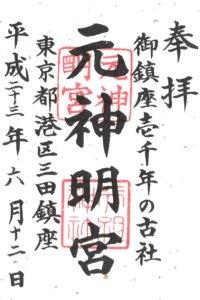 奉拝
御鎮座壱千年の古社
元神明宮
東京都港区三田鎮座
平成二十三年六月十二日